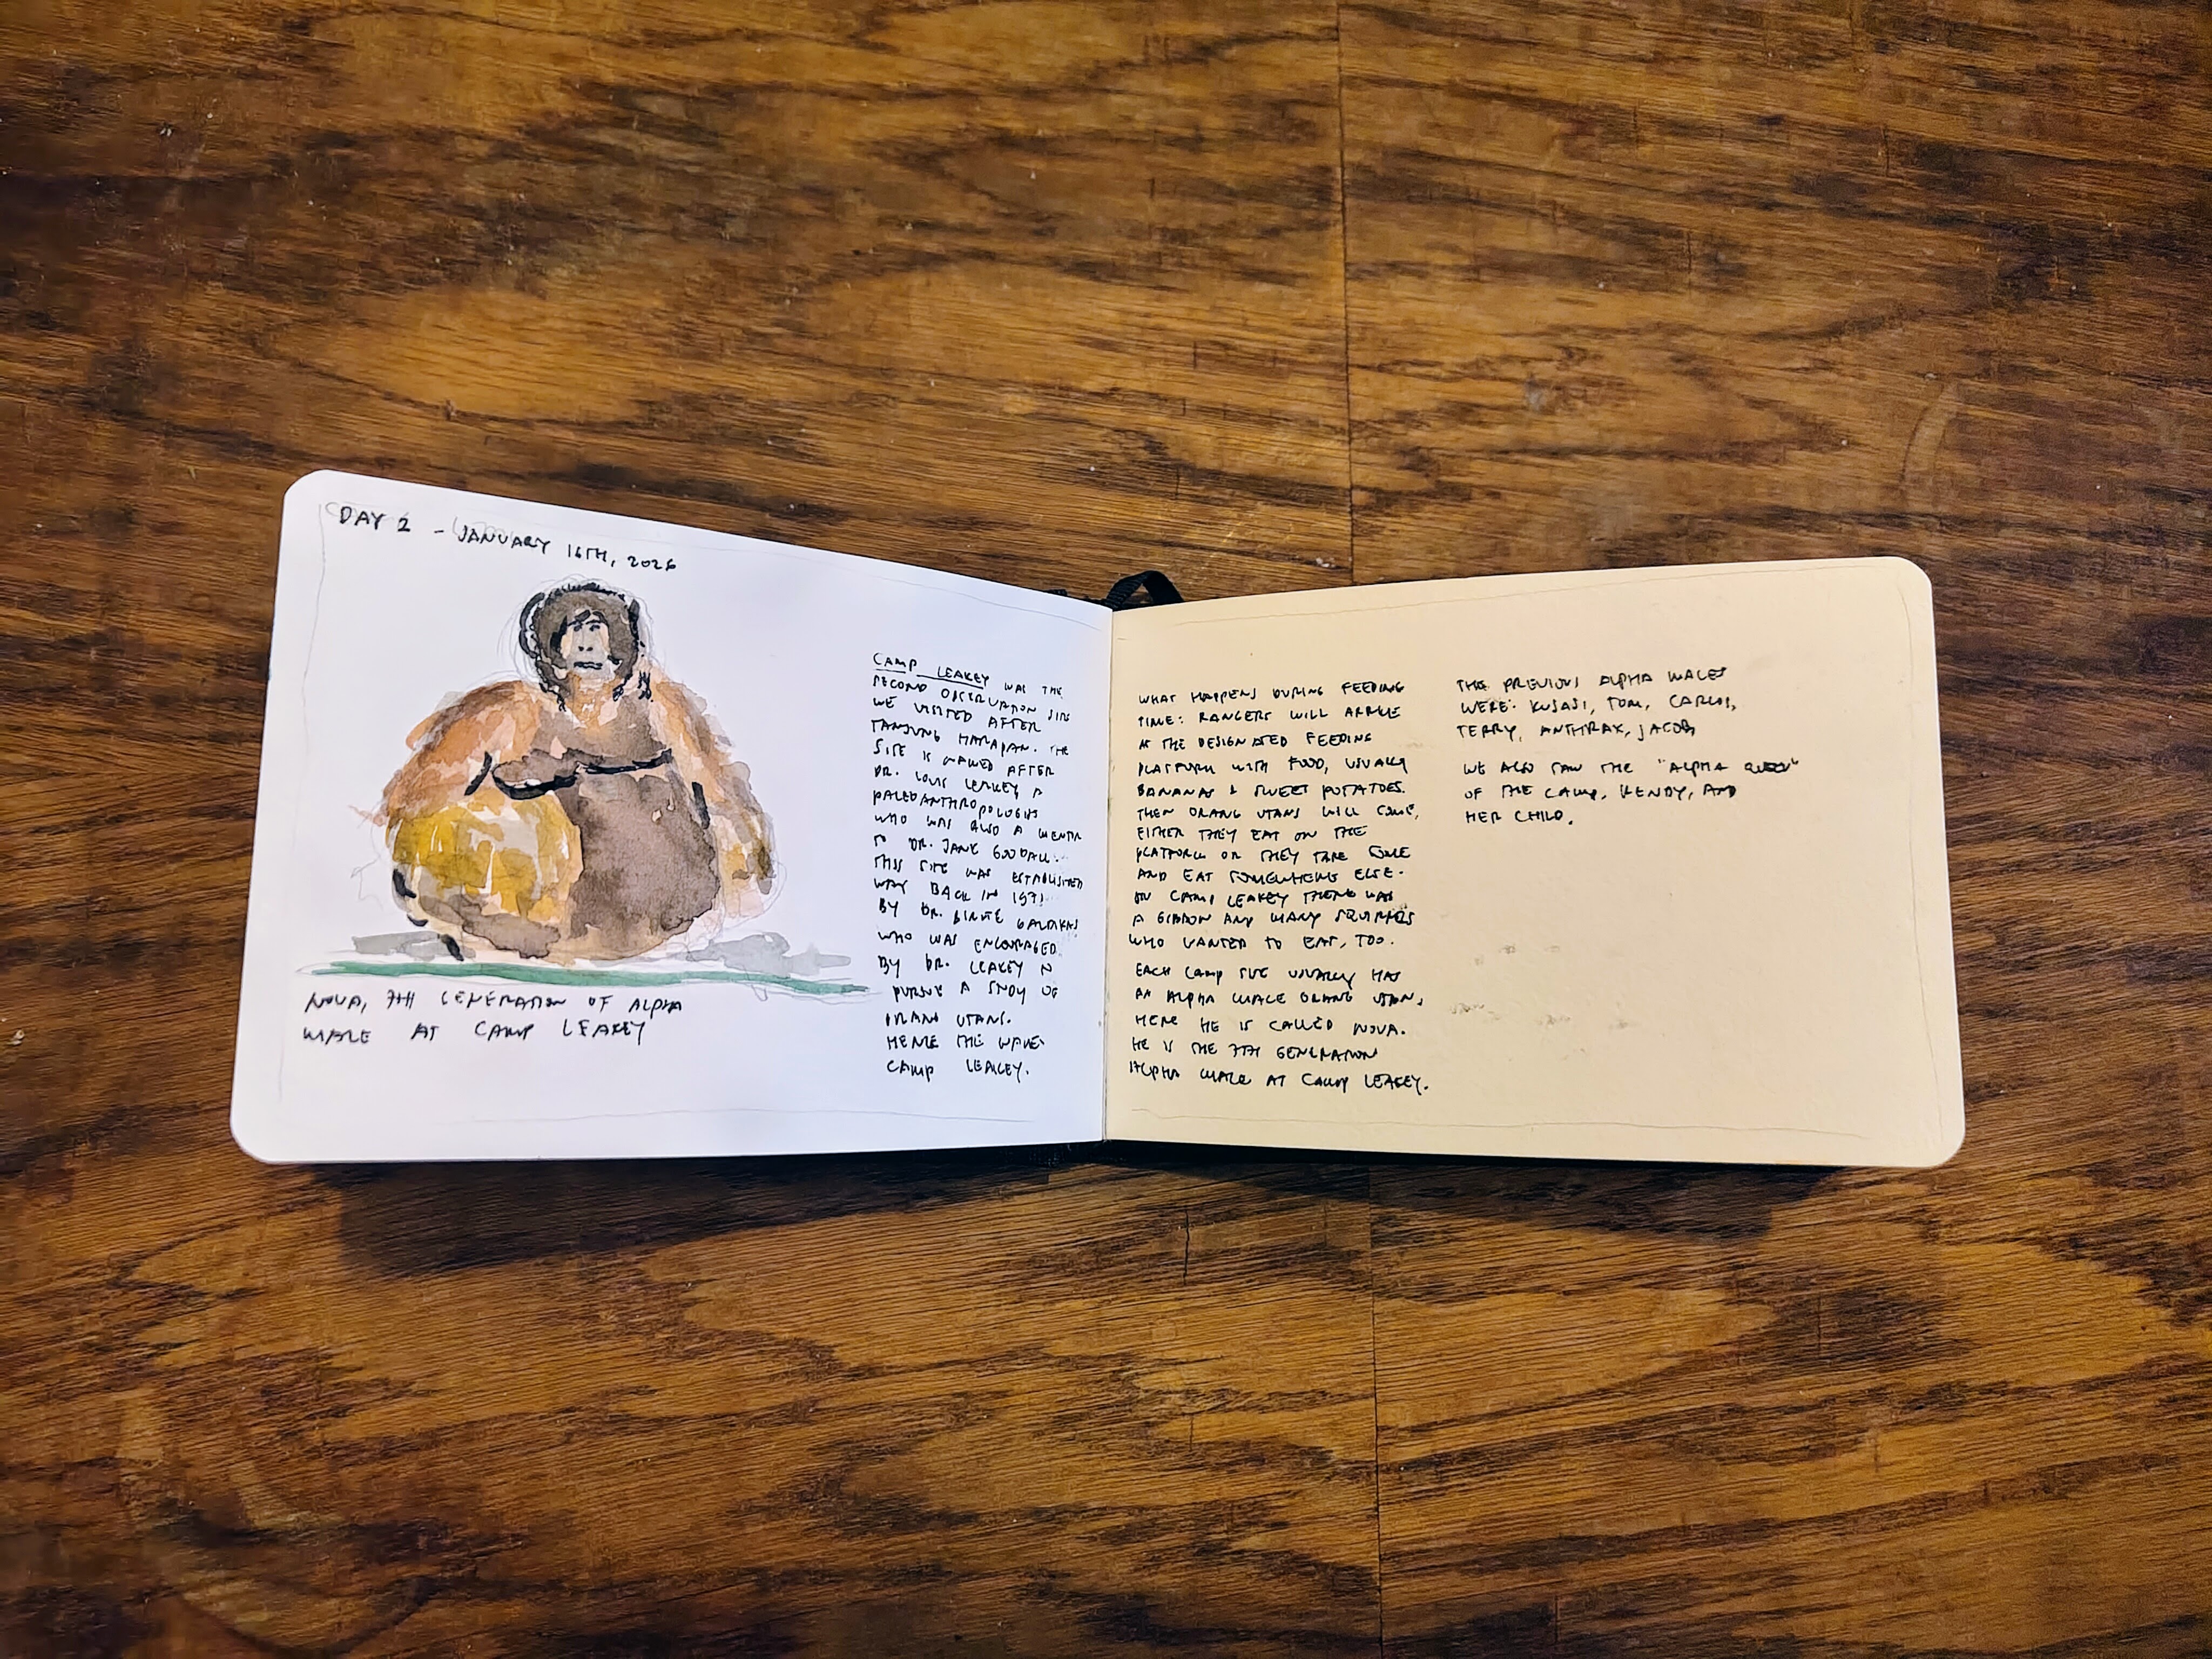 DAY 2 - JANUARY 16TH, 2026
NOVA, 7TH GENERATION OF ALPHA
MALE AT CAMP LEAKEY
CAMP LEAKEY WAS THE
SECOND OBSERVATION SITE
WE VISITED AFTER
TANJUNG HARAPAN. THE
SITE IS NAMED AFTER
DR. LOUIS LEAKEY A
PALEOANTHROPOLOGIS
WHO WAS ALSO A MENTR
TO DR. JANE GOODALL.
THIS SITE WAS ESTABLISHED
WAY BACK IN 1971
BY DR. BIRUTE GALDIKAS
WHO WAS ENCOURAGED
BY DR. LEAKEY TO
PURSUE A STUDY OF
ORANG UTANS.
HENCE THE NAME
CAMP LEAKEY.
WHAT HAPPENS DURING FEEDING
TIME: RANGERS WILL ARRIVE
AT THE DESIGNATED FEEDING
PLATFORM WITH FOOD, USUALLY
BANANAS & SWEET POTATOES.
THEN ORANG UTANS WILL COME,
EITHER THEY EAT ON THE
PLATFORM OR THEY TAKE SOME
AND EAT SOMEWHERE ELSE.
IN CAMP LEAKEY THERE WAS
A GIBBON AND MANY SQUIRRELS
WHO WANTED TO EAT, TOO.
EACH CAMP SITE USUALLY HAS
AN ALPHA MALE ORANG UTAN,
HERE HE IS CALLED NOVA.
HE IS THE 7TH GENERATION
ALPHA MALE AT CAMP LEAKEY.
THE PREVIOUS ALPHA MALES
WERE: KUSASI, TOM, CARLOS,
TERRY, ANTHRAX, JACOB
WE ALSO SAW THE "ALPHA QUEEN"
OF THE CAMP, KENDY, AND
HER CHILD.